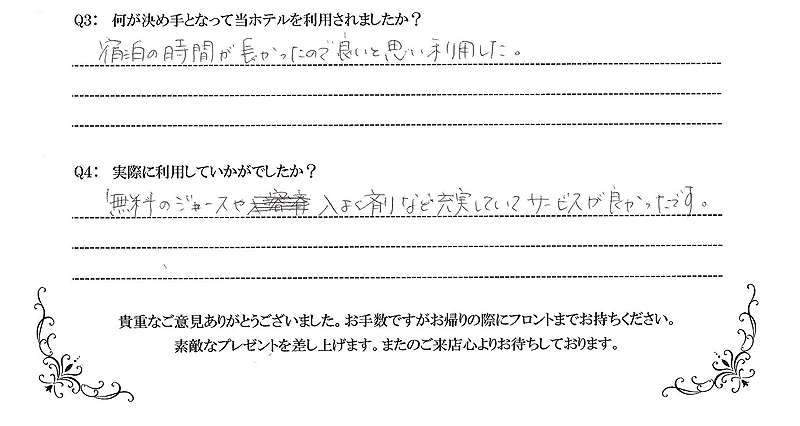 Q3: 何が決め手となって当ホテルを利用されましたか？
宿泊の時間が長かったので良いと思い利用した。
Q4: 実際に利用していかがでしたか？
無料のジュースや 入よく剤など充実していてサービスが良かったです。
貴重なご意見ありがとうございました。お手数ですがお帰りの際にフロントまでお持ちください。
素敵なプレゼントを差し上げます。またのご来店心よりお待ちしております。